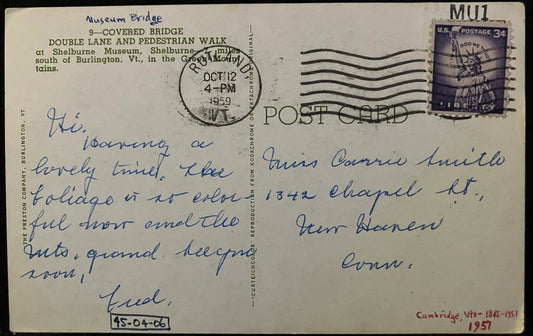 Museum Bridge
9—COVERED BRIDGE
DOUBLE LANE AND PEDESTRIAN WALK
at Shelburne Museum, Shelburne, 7 miles
south of Burlington, Vt., in the Green Moun-
tains.
MU1
U.S. POSTAGE 3¢
IN GOD WE TRUST
LIBERTY
RUTLAND
OCT 12
4-PM
1959
VT.
POST CARD
THE PRESTON COMPANY, BURLINGTON, VT
CURTEICHCOLOR REPRODUCTION FROM KODACHROME OR EKTACHROME ORIGINAL
Hi,
Having a
lovely time, the
foliage is so color-
ful now and the
mts. grand. See you
soon,
Fred.
45-04-06
Miss Carrie Smith
1342 Chapel St.,
New Haven
Conn.
Cambridge, Vt - 1845-1951
1951